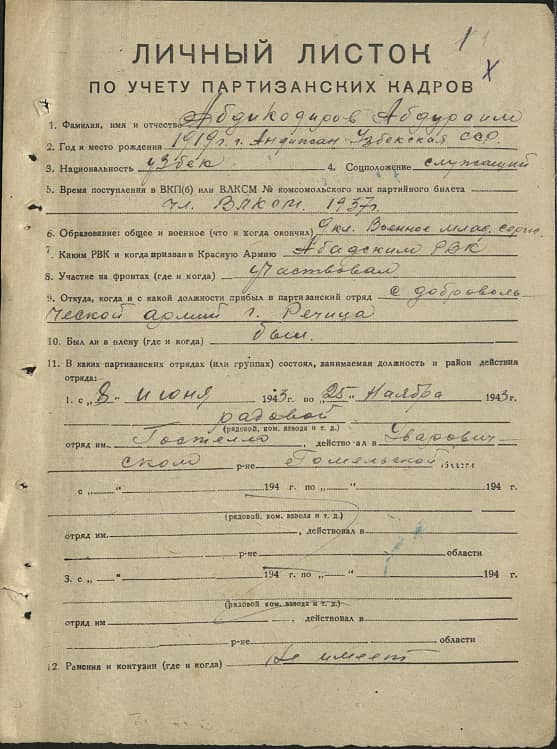 1
X
ЛИЧНЫЙ ЛИСТОК
ПО УЧЕТУ ПАРТИЗАНСКИХ КАДРОВ
1. Фамилия, имя и отчество Абдикодиров Абдураим
2. Год и место рождения 1919 г. г. Андижан Узбекская ССР
3. Национальность узбек 4. Соцположение служащий
5. Время поступления в ВКП(б) или ВЛКСМ № комсомольского или партийного билета
чл. ВЛКСМ. 1937г
6. Образование: общее и военное (что и когда окончил) 9 кл. Военное млад. серж.
7. Каким РВК и когда призван в Красную Армию Абадским РВК
8. Участие на фронтах (где и когда) участвовал
9. Откуда, когда и с какой должности прибыл в партизанский отряд с доброволь
ческой армий г. Речица
10. Был ли в плену (где и когда) был.
11. В каких партизанских отрядах (или группах) состоял, занимаемая должность и район действия
отряда:
1. с „8“ июня 1943 г. по „25“ Ноября 1943 г.
радовой
(рядовой, ком. взвода и т. д.)
отряд им. Гостелло, действовал в Уварович-
ском р-не Гомельской области
с „ “ 194 г. по „ “ 194 г.
(рядовой, ком. взвода и т. д.)
отряд им. , действовал в
р-не области
3. с „ “ 194 г. по „ “ 194 г.
(рядовой, ком. взвода и т. д.)
отряд им. , действовал в
р-не области
12. Ранения и контузии (где и когда) не имеет